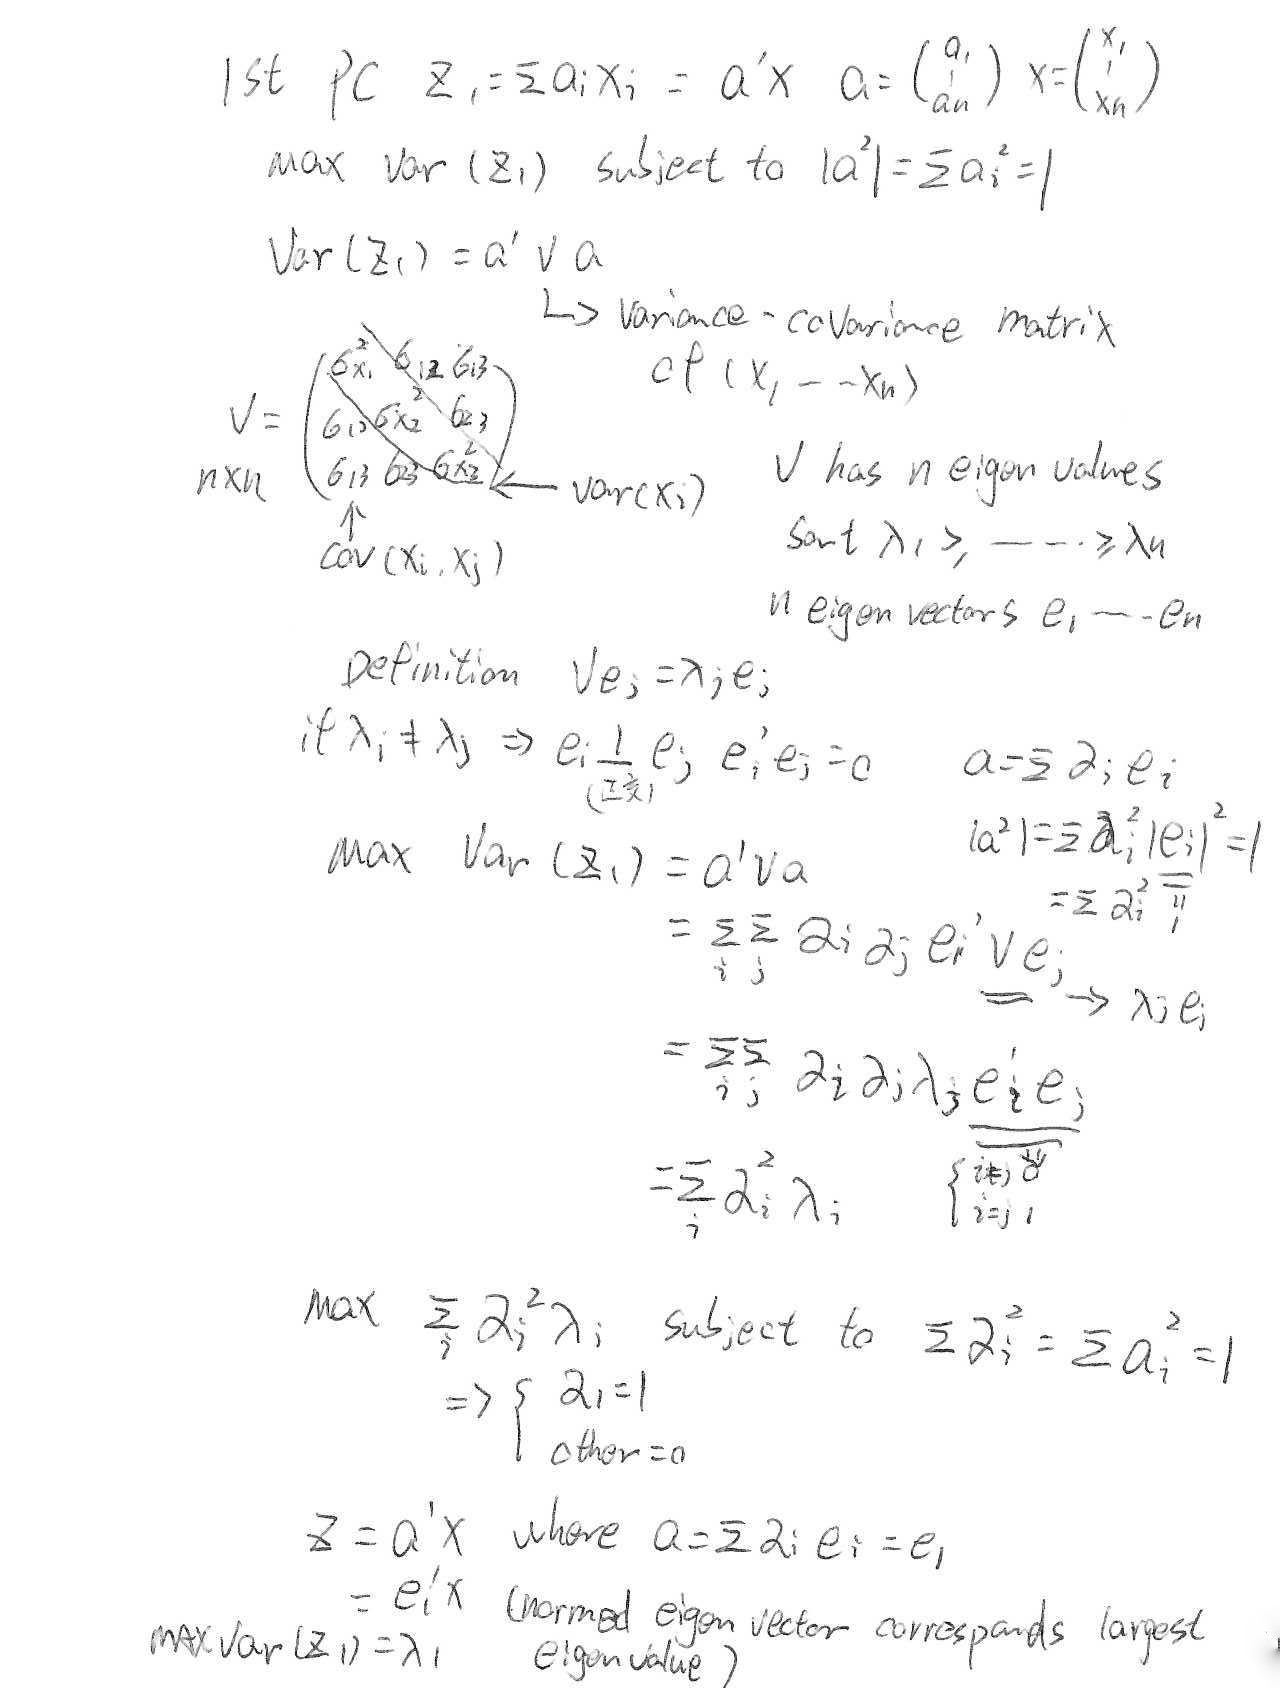 1st PC Z₁ = Σaᵢxᵢ = a'x a = (a₁ ¦ aₙ) x = (x₁ ¦ xₙ)
max Var (Z₁) subject to |a²| = Σaᵢ² = 1
Var(Z₁) = a' V a
↳ variance - covariance matrix
of (x₁ --- xₙ)
V = (σx₁² σ₁₂ σ₁₃
σ₁₂ σx₂² σ₂₃
n×n σ₁₃ σ₂₃ σx₃²) ← var(xᵢ)
↑
cov(xᵢ, xⱼ)
V has n eigen values
Sort λ₁ ≥ ---- ≥ λₙ
n eigen vectors e₁ --- eₙ
Definition Veⱼ = λⱼeⱼ
if λᵢ ≠ λⱼ ⇒ eᵢ ⊥ eⱼ eᵢ'eⱼ = 0
(正交)
a = Σ∂ᵢeᵢ
|a²| = Σ∂ᵢ²|eᵢ|² = 1
= Σ∂ᵢ² 〃 1
max Var (Z₁) = a'Va
= Σᵢ Σⱼ ∂ᵢ ∂ⱼ eᵢ' V eⱼ
→ λⱼeⱼ
= Σᵢ Σⱼ ∂ᵢ ∂ⱼ λⱼ eᵢ' eⱼ
{ i≠j 0
i=j 1
= Σᵢ ∂ᵢ² λᵢ
Max Σᵢ ∂ᵢ² λᵢ subject to Σ∂ᵢ² = Σaᵢ² = 1
⇒ { ∂₁ = 1
other = 0
Z = a'x where a = Σ∂ᵢeᵢ = e₁
= e₁'x (normed eigen vector corresponds largest
eigen value)
MAX Var (Z₁) = λ₁